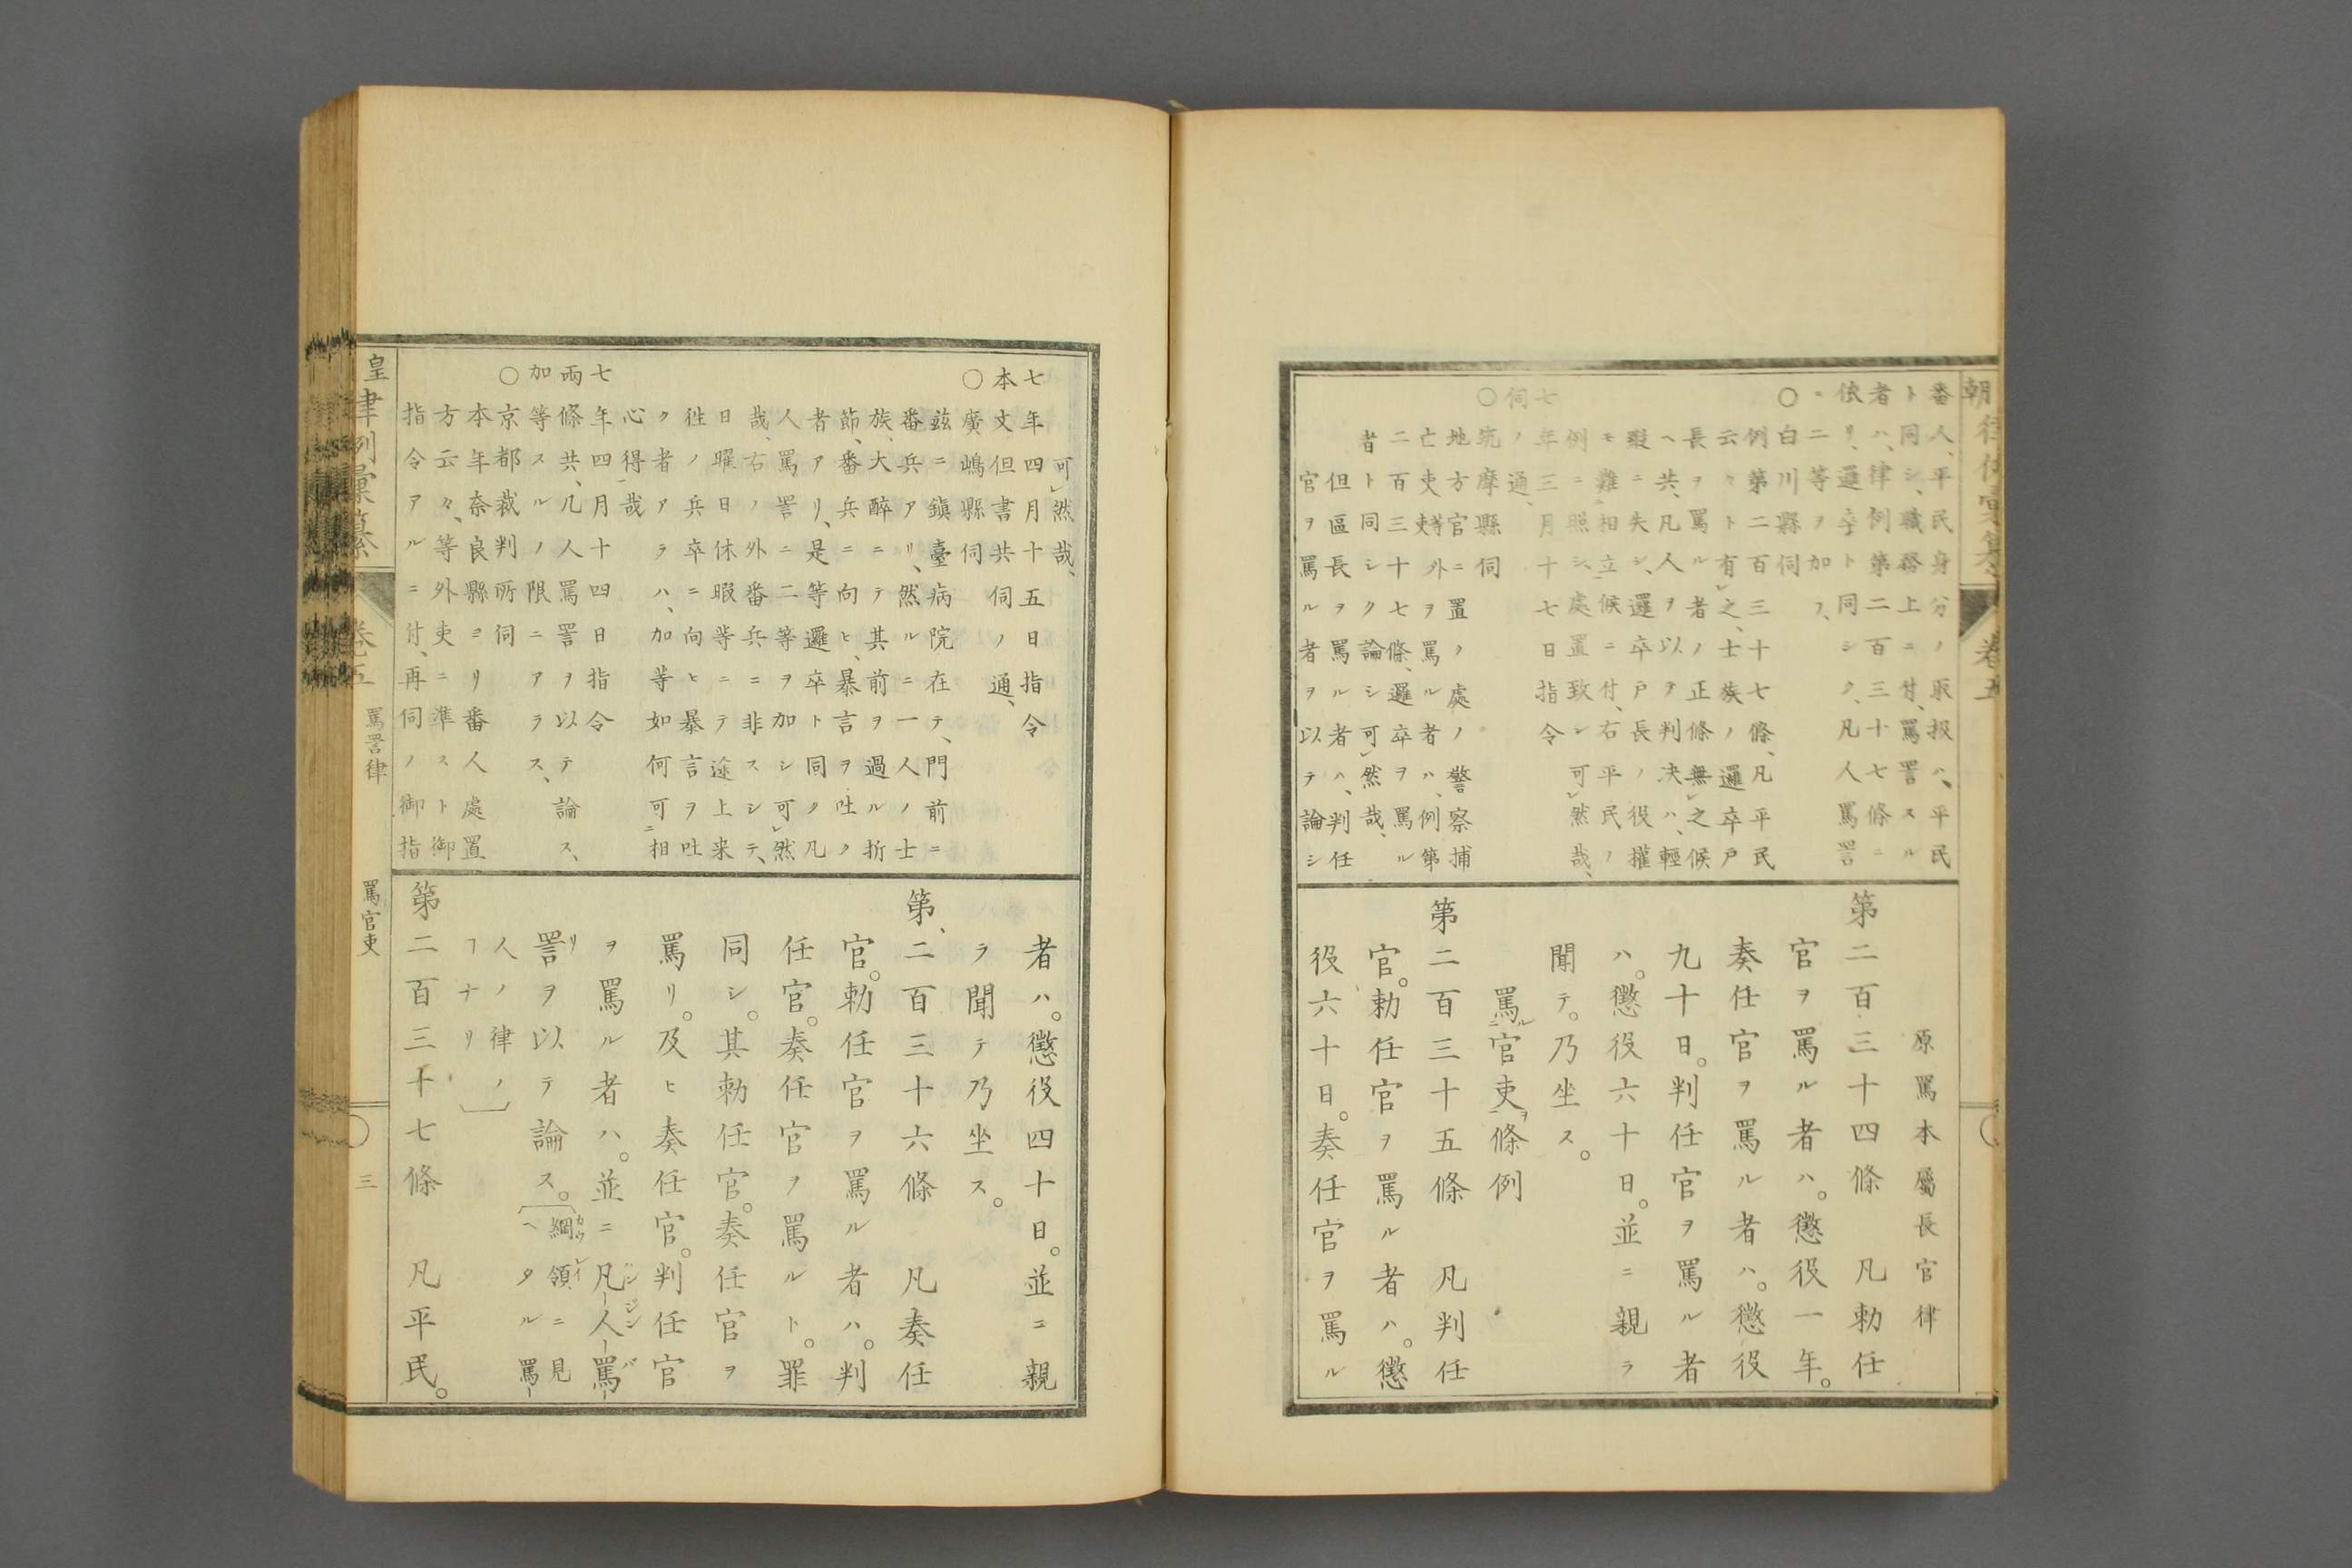 番人、平民身分ノ取扱ハ、平民
ト同シ、職務上ニ付、罵詈スル
者ハ、律例第二百三十七條ニ
依リ、邏卒ト同シク、凡人罵詈
ニ二等ヲ加フ、
○白川縣伺
例第二百三十七條、凡平民
云々ト有レ之、士族ノ邏卒戸
長ヲ罵ル者ノ正條無レ之候
ヘ共、凡人ヲ以テ判決ハ、輕
縱ニ失シ、邏卒戸長ノ役權
モ難相立候ニ付、右平民ノ
例ニ照シ、處置致シ可レ然哉、
七年三月十七日指令
伺ノ通、
○筑摩縣伺
地方官ニ置ノ處ノ警察捕
亡吏等外ヲ罵ル者ハ、例第
二百三十七條、邏卒ヲ罵ル
者ト同シク論シ可レ然哉、
但區長ヲ罵ル者ハ、判任
官ヲ罵ル者ヲ以テ論シ
原罵本屬長官律
第二百三十四條 凡勅任
官ヲ罵ル者ハ。懲役一年。
奏任官ヲ罵ル者ハ。懲役
九十日。判任官ヲ罵ル者
ハ。懲役六十日。並ニ親ラ
聞テ。乃坐ス。
罵ル官吏ヲ條例
第二百三十五條 凡判任
官。勅任官ヲ罵ル者ハ。懲
役六十日。奏任官ヲ罵ル
朝
卷五
可レ然哉、
七年四月十五日指令
本文但書共伺ノ通、
○廣嶋縣伺
茲ニ鎭臺病院在テ、門前ニ
番兵アリ、然ルニ一人ノ士
族、大醉ニテ其前ヲ過ル折
節、番兵ニ向ヒ、暴言ヲ吐ク
者アリ、是等邏卒ト同ク凡
人罵詈ニ二等ヲ加シ可レ然
哉、右ノ外番兵ニ非スシテ、
日曜日休暇等ニテ途上来
徃ノ兵卒ニ向ヒ暴言ヲ吐
ク者アラハ、加等如何可ニ相
心得哉
七年四月十四日指令
兩條共、凡人罵詈ヲ以テ論ス、
加等スルノ限ニアラス、
○京都裁判所伺
本年奈良縣ヨリ番人處置
方云々、等外吏ニ準スト御
指令アルニ付、再伺ノ御指
者ハ。懲役四十日。並ニ親
ラ聞テ乃坐ス。
第二百三十六條 凡奏任
官。勅任官ヲ罵ル者ハ。判
任官。奏任官ヲ罵ルト。罪
同シ。其勅任官。奏任官ヲ
罵リ。及ヒ奏任官。判任官
ヲ罵ル者ハ。並ニ凡人罵
詈ヲ以テ論ス。綱領ニ見
ヘタル罵
人ノ律ノ
ヿナリ
第二百三十七條 凡平民。
皇律例彙纂 卷五 罵詈律 罵官吏 三